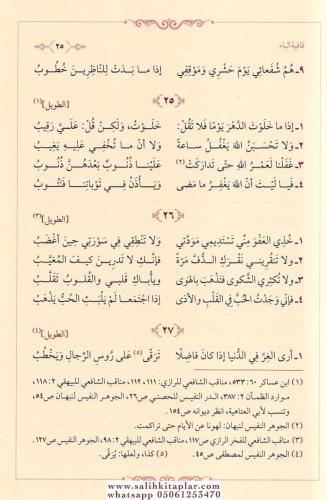 قافية الباء
٢٥
٩- هُمُ شُفَعائي يَوْمَ حَشْري وَمَوْقِفي إذا ما بَدَتْ لِلنَّاظِرِينَ خُطُوبُ
٢٥
[الطويل] (١)
١- إذا ما خَلَوْتَ الدَّهْرَ يَوْمًا فَلا تَقُلْ: خَلَوْتُ، وَلَكِنْ قُلْ: عَلَيَّ رَقِيبُ
٢- وَلا تَحْسَبَنَّ اللهَ يَغْفُلُ ساعَةً وَلا أنْ ما تُخْفِي عَلَيهِ يَغِيبُ
٣- غَفَلْنَا لَعَمْرُ اللهِ حتَّى تَدارَكَتْ (٢) عَلَيْنا ذُنُوبٌ بَعْدَهُنَّ ذُنُوبُ
٤- فَيا لَيْتَ أنَّ اللهَ يَغْفِرُ ما مَضى وَيَأْذَنُ في تَوْباتِنا فَنَتُوبُ
٢٦
[الطويل] (٣)
١- خُذي العَفْوَ مِنِّي تَسْتَدِيمي مَوَدَّتي وَلا تَنْطِقِي في سَوْرَتي حِينَ أغْضَبُ
٢- ولا تَنْقُرِيني نَقْرَكِ الدُّفَّ مَرَّةً فإنَّكِ لا تَدْرِينَ كيفَ المُغَيَّبُ
٣- ولا تُكْثِري الشَّكْوى فَتَذْهَبَ بالهَوى ويأباكِ قَلبي والقُلُوبُ تَقَلَّبُ
٤- فإنِّي وَجَدْتُ الحُبَّ في القَلْبِ والأذى إذا اجْتَمَعا لَمْ يَلْبَثِ الحُبُّ يَذْهَبُ
٢٧
[الطويل] (٤)
١- أرى الغِرَّ في الدُّنيا إذا كانَ فاضِلًا تَرَقَّى (٥) على رُوسِ الرِّجالِ وَيَخْطُبُ
(١) ابن عساكر ٦٠: ٥٣٣، مناقب الشافعي للرازي: ١١١، ١١٢، مناقب الشافعي للبيهقي ٢: ١١٨،
موارد الظمآن ٢: ٣٨٧، الدر النفيس للحصني ص٢٦، الجوهر النفيس لنبهان ص٥٤،
وتنسب لأبي العتاهية، انظر ديوانه ص١٥.
(٢) الجوهر النفيس لنبهان: لهونا عن الأيام حتى تراكمت.
(٣) مناقب الشافعي للفخر الرازي ص١١٧، مناقب الشافعي للبيهقي ٢: ٩٨، الجوهر النفيس ص١٢٧.
(٤) الجوهر النفيس لمصطفى ص٤٥. (٥) كذا، ولعلها: يُرَقَّى.
www.salihkitaplar.com
whatsapp 05061253470